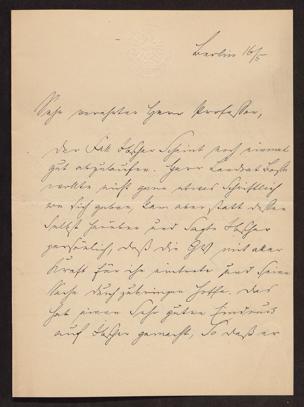 Berlin 16/5
Sehr verehrter Herr Professor,
Der Fall scheint noch einmal
gut abzulaufen. Herr Landrat
wollte nicht gern etwas Schriftlich
von sich geben, kam aber statt dessen
selbst herüber und sagte
persönlich, daß die GV mit aller
Kraft für ihn eintrete und seine
Sache durchzubringen hoffe. Das
hat einen sehr guten Eindruck
auf gemacht, so daß er